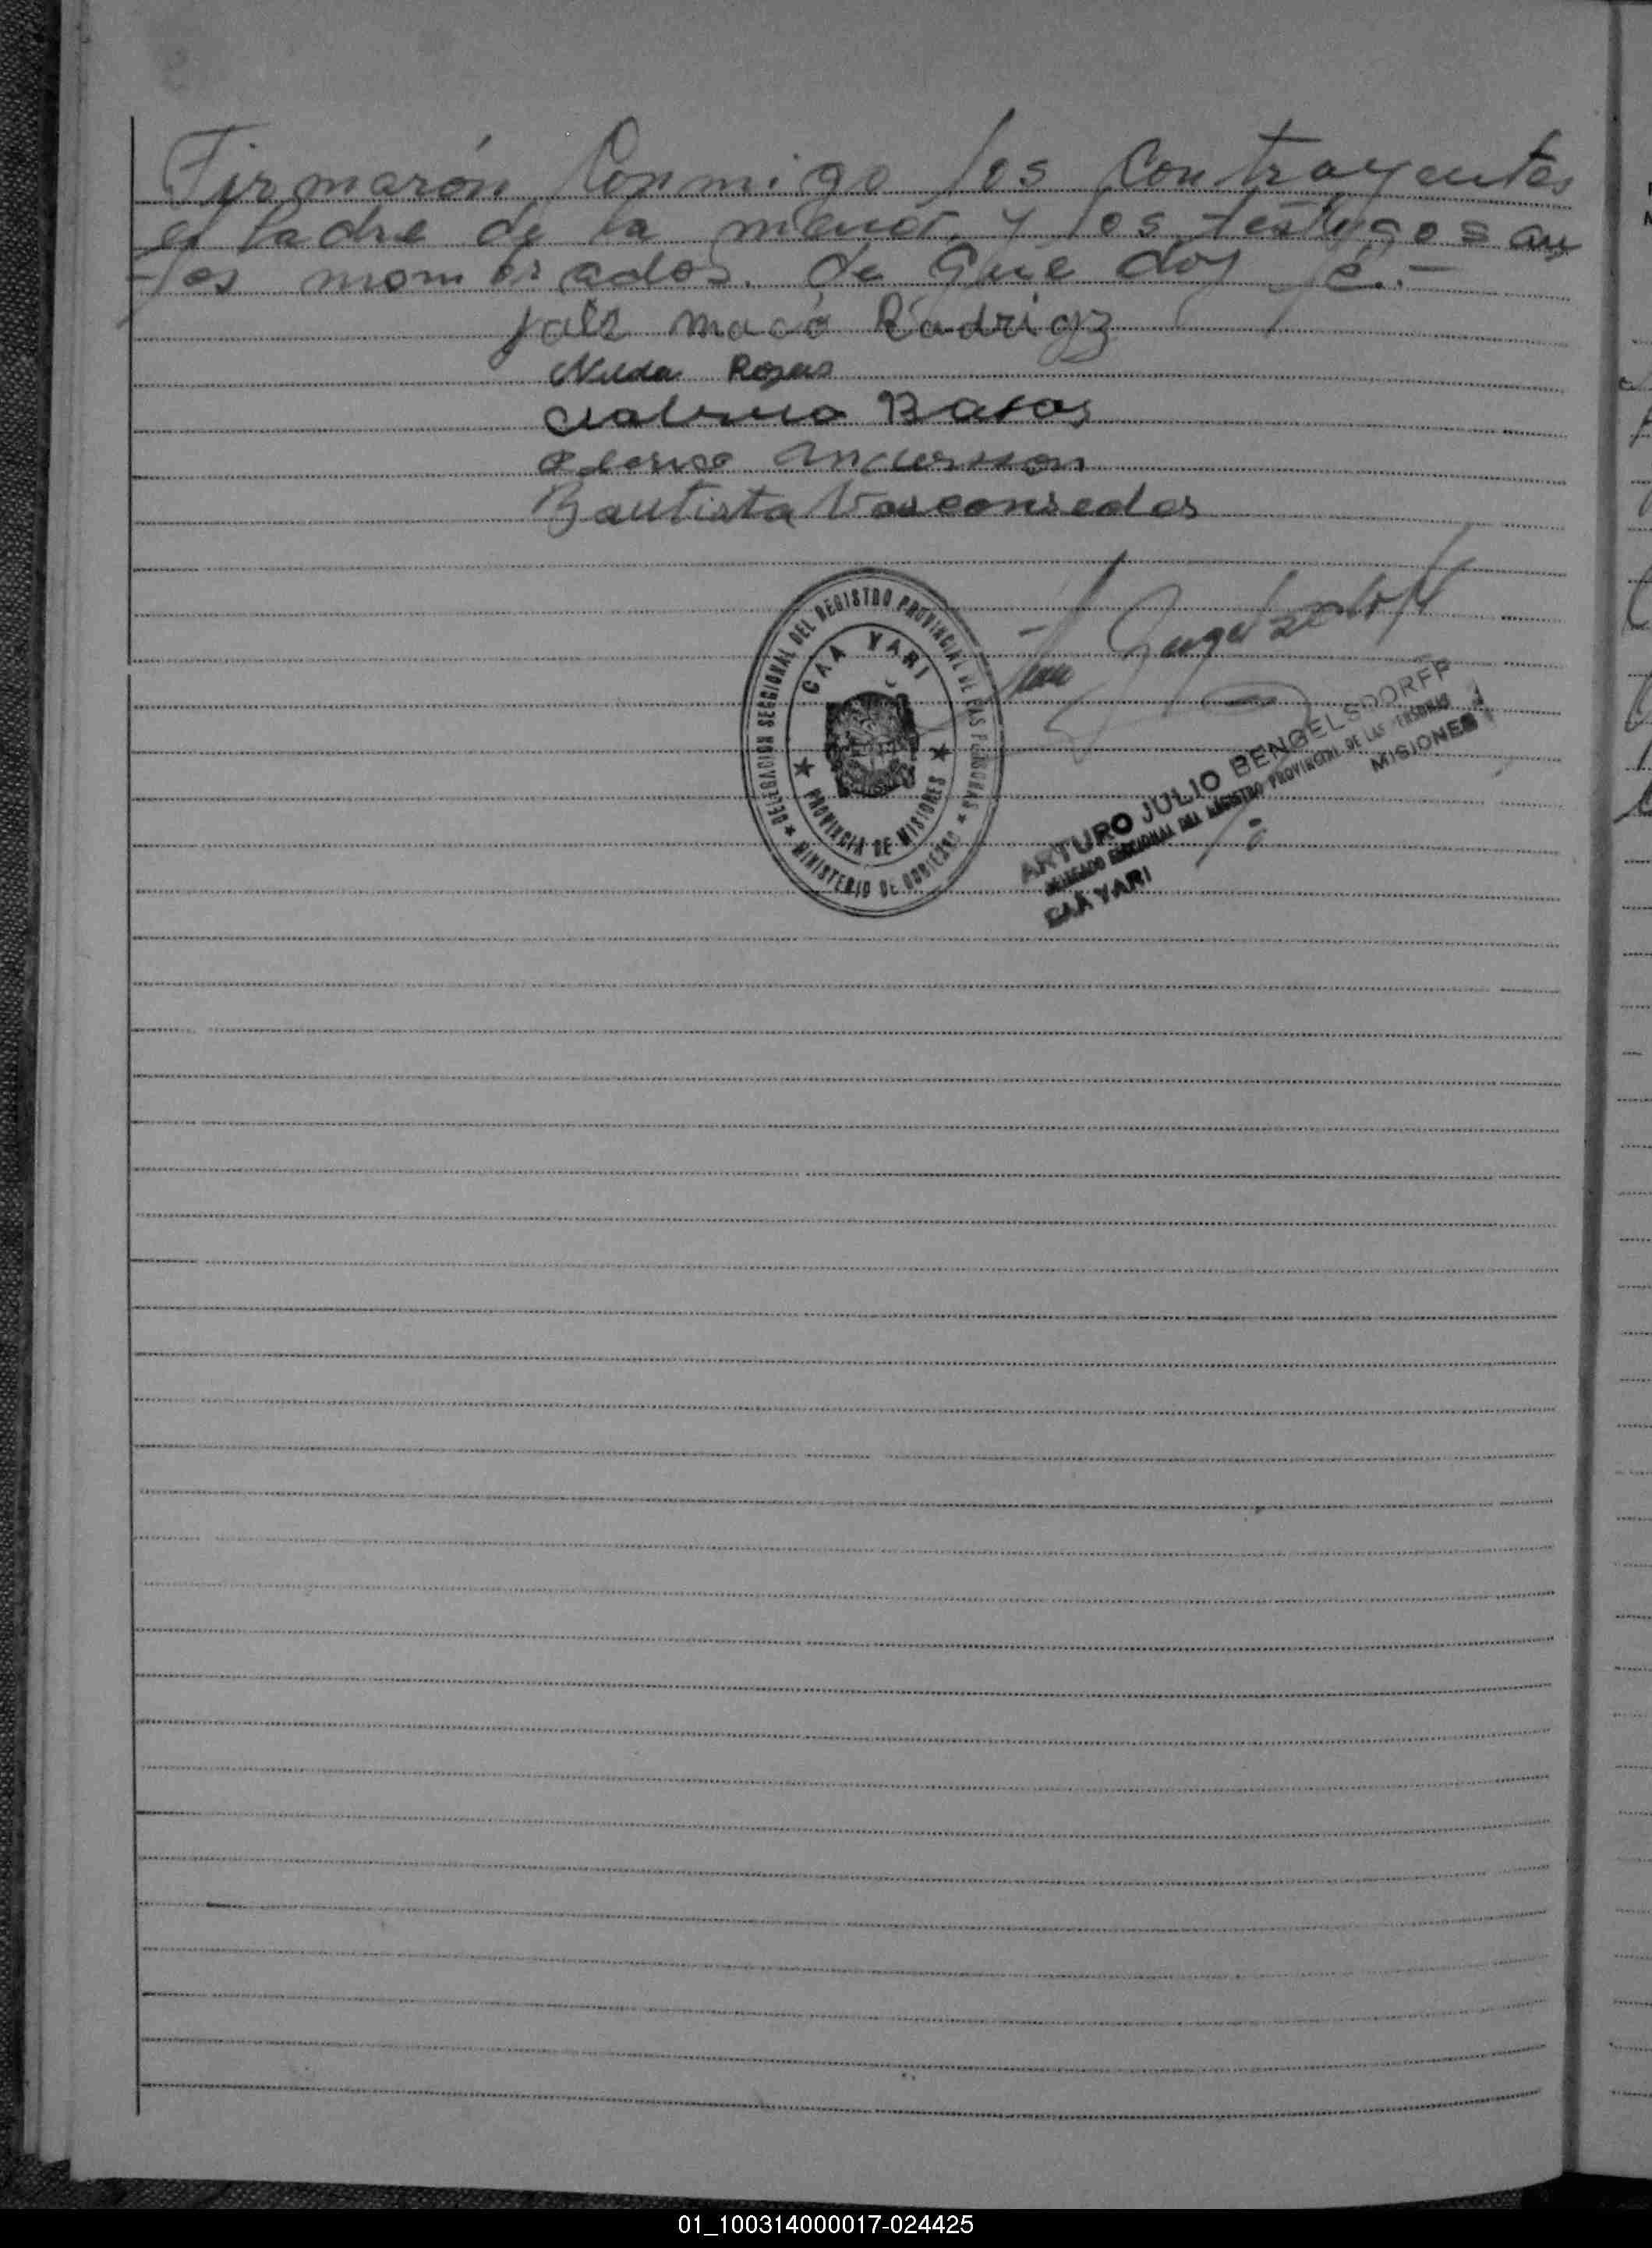 Firmarón Conmigo los Contrayentes
el Padre de la menor, y los testigos an
tes nombrados. de que doy fé.-
Rodrigz
Nilda Rojas
Bautista Vasconsedos
DELEGACION SECCIONAL DEL REGISTRO PROVINCIAL DE LAS PERSONAS
CAA YARI
PROVINCIA DE MISIONES
MINISTERIO DE GOBIERNO
ARTURO JULIO BENGELSDORFF
DELEGADO SECCIONAL DEL REGISTRO PROVINCIAL DE LAS PERSONAS
CAA YARI MISIONES
01_100314000017-024425